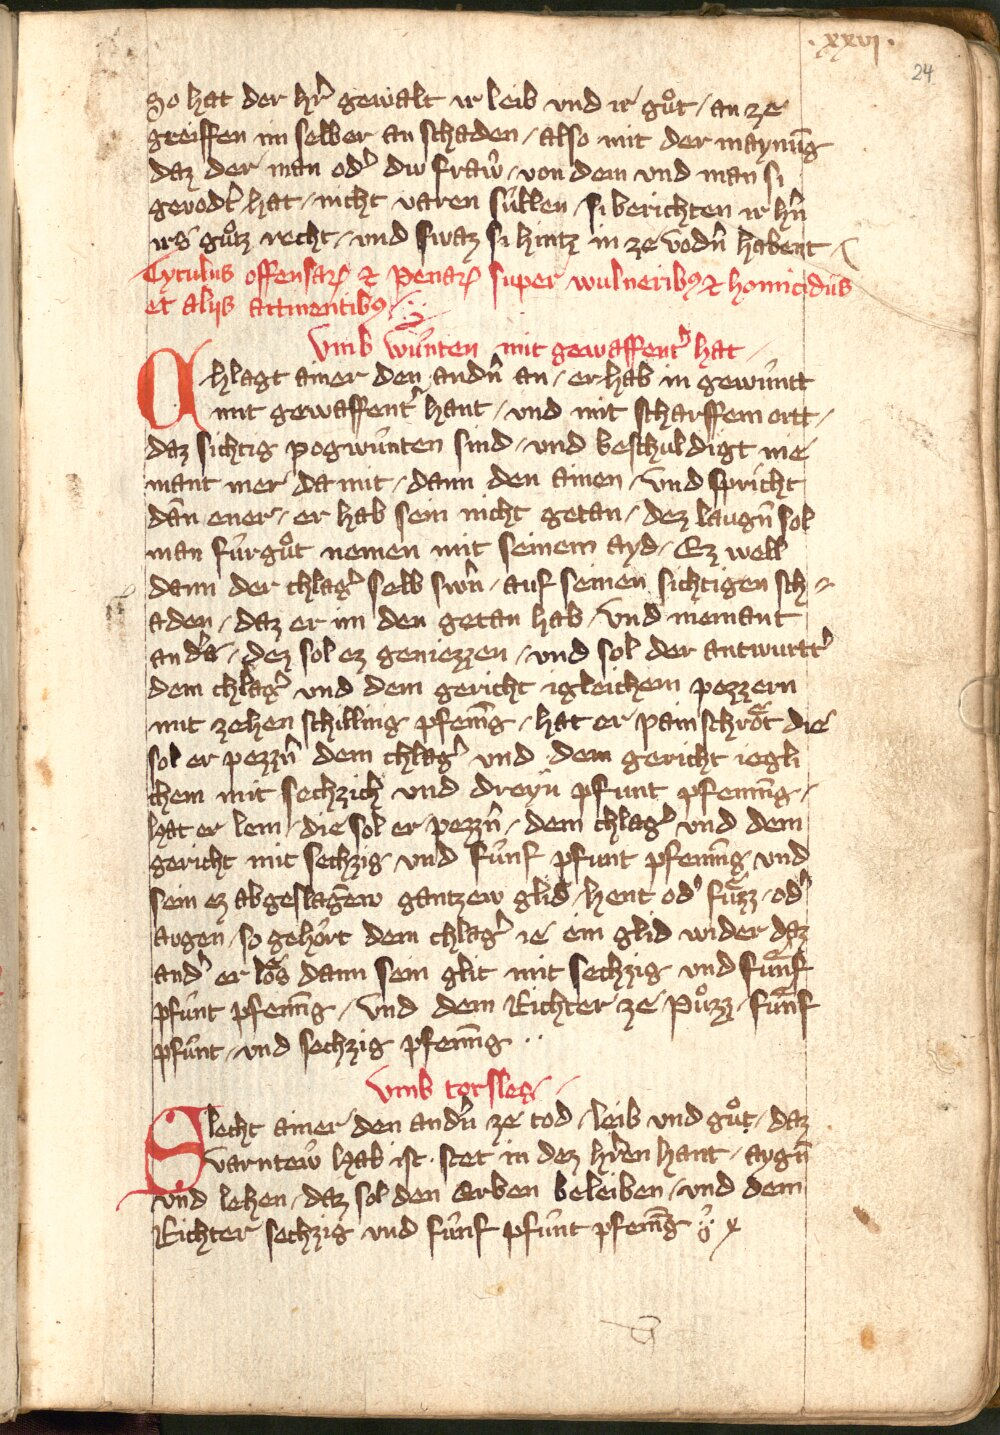 · xxvj ·
24
So hat der hr̄ gewalt ir leib vnd ir guͦt / an ze
greiffen im selber an schaden / also mit der maynūg
daz der man od̾ diu fraw̄ / von dem vnd man si
gevodt̾ hat / nicht varen süllen / si berichten ir hn̄
irs guͦtz recht / vnd swaz si hintz in ze vodn̄ habent
Tytulus offensaꝝ ⁊ penaꝝ super wulneribꝰ ⁊ homicidiis
et alijs attinentibꝰ
Vmb wůnten mit gewaffent̾ hat
Chlagt ainer den andn̄ an / er hab in gewůntt
mit gewaffent̾ hant / vnd mit scharffem ortt /
daz sichtig pogwůnten sind / vnd beschuldigt nie
mant mer da mit / dann den ainen / vnd spricht
dān ener / er hab sein nicht getan / dez laugn̄ sol
man fůrguͦt nemen mit seinem ayd / Ez well
dann der chlag̾ selb swn̄ / auf seinen sichtigen sch
aden / daz er im den getan hab / vnd niemant
and̾a / dez sol ez geniezzen / vnd sol der antwurtt̾
dem chlag̾ vnd dem gericht igleichem pezzern
mit zehen schilling pfenīg / hat er painschroͤt die
sol er pezzn̄ dem chlag̾ vnd dem gericht iegli
chem mit sechzich vnd dreyn pfunt pfennīg /
hat er lem / die sol er pezzn̄ / dem chlag̾ vnd dem
gericht mit sechzig vnd fůnf pfunt pfennīg vnd
sein ez abgeslagēw gantzew glid / hent od̾ fuͤzz / od̾
augen / so gehört dem chlag̾ ie ein glid wider daz
and̾ er loͤs dann sein glit mit sechzig vnd fuͤnf
pfůnt pfenīg / vnd dem Richter ze Puͦzz / fuͤnf
pfůnt / vnd sechzig pfennīg ··
Vmb torsleg
Slecht ainer den andn̄ ze tod / leib vnd guͦt / daz
varntew hab ist · stet in dez hr̄en hant / aygn̄
vnd lehen / daz sol den Erben beleiben / vnd dem
Richter sechzig vnd fůnf pfůnt pfenīg